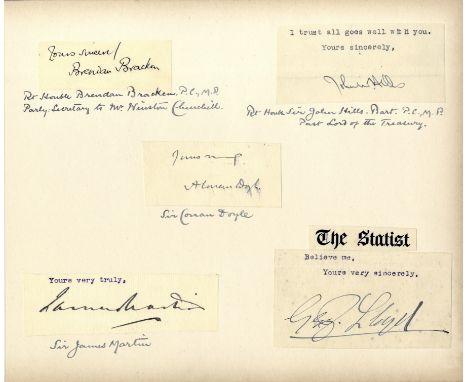 Yours sincerely
Brendan Bracken
Rt Honble Brendan Bracken. P.C., M.P.
Party Secretary to Mr. Winston Churchill.
I trust all goes well with you.
Yours sincerely,
John Hills
Rt Honble Sir John Hills. Bart. P.C., M.P.
Past Lord of the Treasury.
Yours
A Conan Doyle
Sir Conan Doyle
The Statist
Believe me,
Yours very sincerely,
Geo. Lloyd
Yours very truly,
James Martin
Sir James Martin